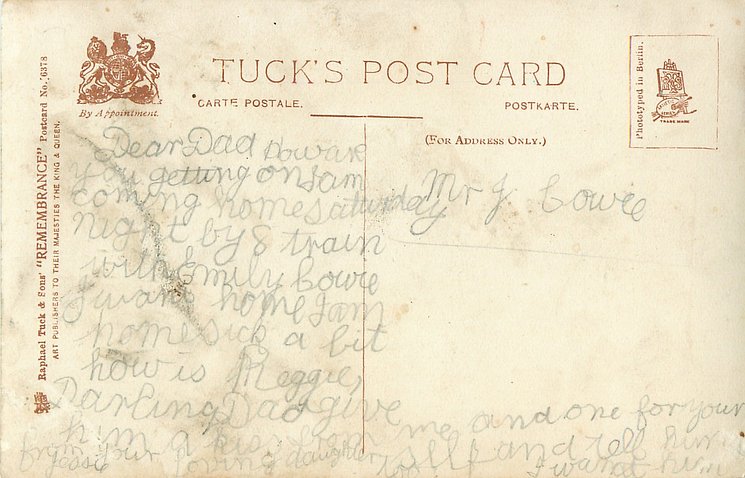 By Appointment.
TUCK'S POST CARD
CARTE POSTALE.
POSTKARTE.
(FOR ADDRESS ONLY.)
Phototyped in Berlin.
TRADE MARK
Raphael Tuck & Sons' "REMEMBRANCE" Postcard No. 6378
ART PUBLISHERS TO THEIR MAJESTIES THE KING & QUEEN.
Dear Dad how are
you getting on I am
coming home saturday
night by 8 train
with Emily Cowie
I want home I am
home sick a bit
how is Reggie,
Darling Dad give
him a kiss from me and one for your
self and tell him
I want him
from your loving daughter
Jessie
Mr J. Cowie